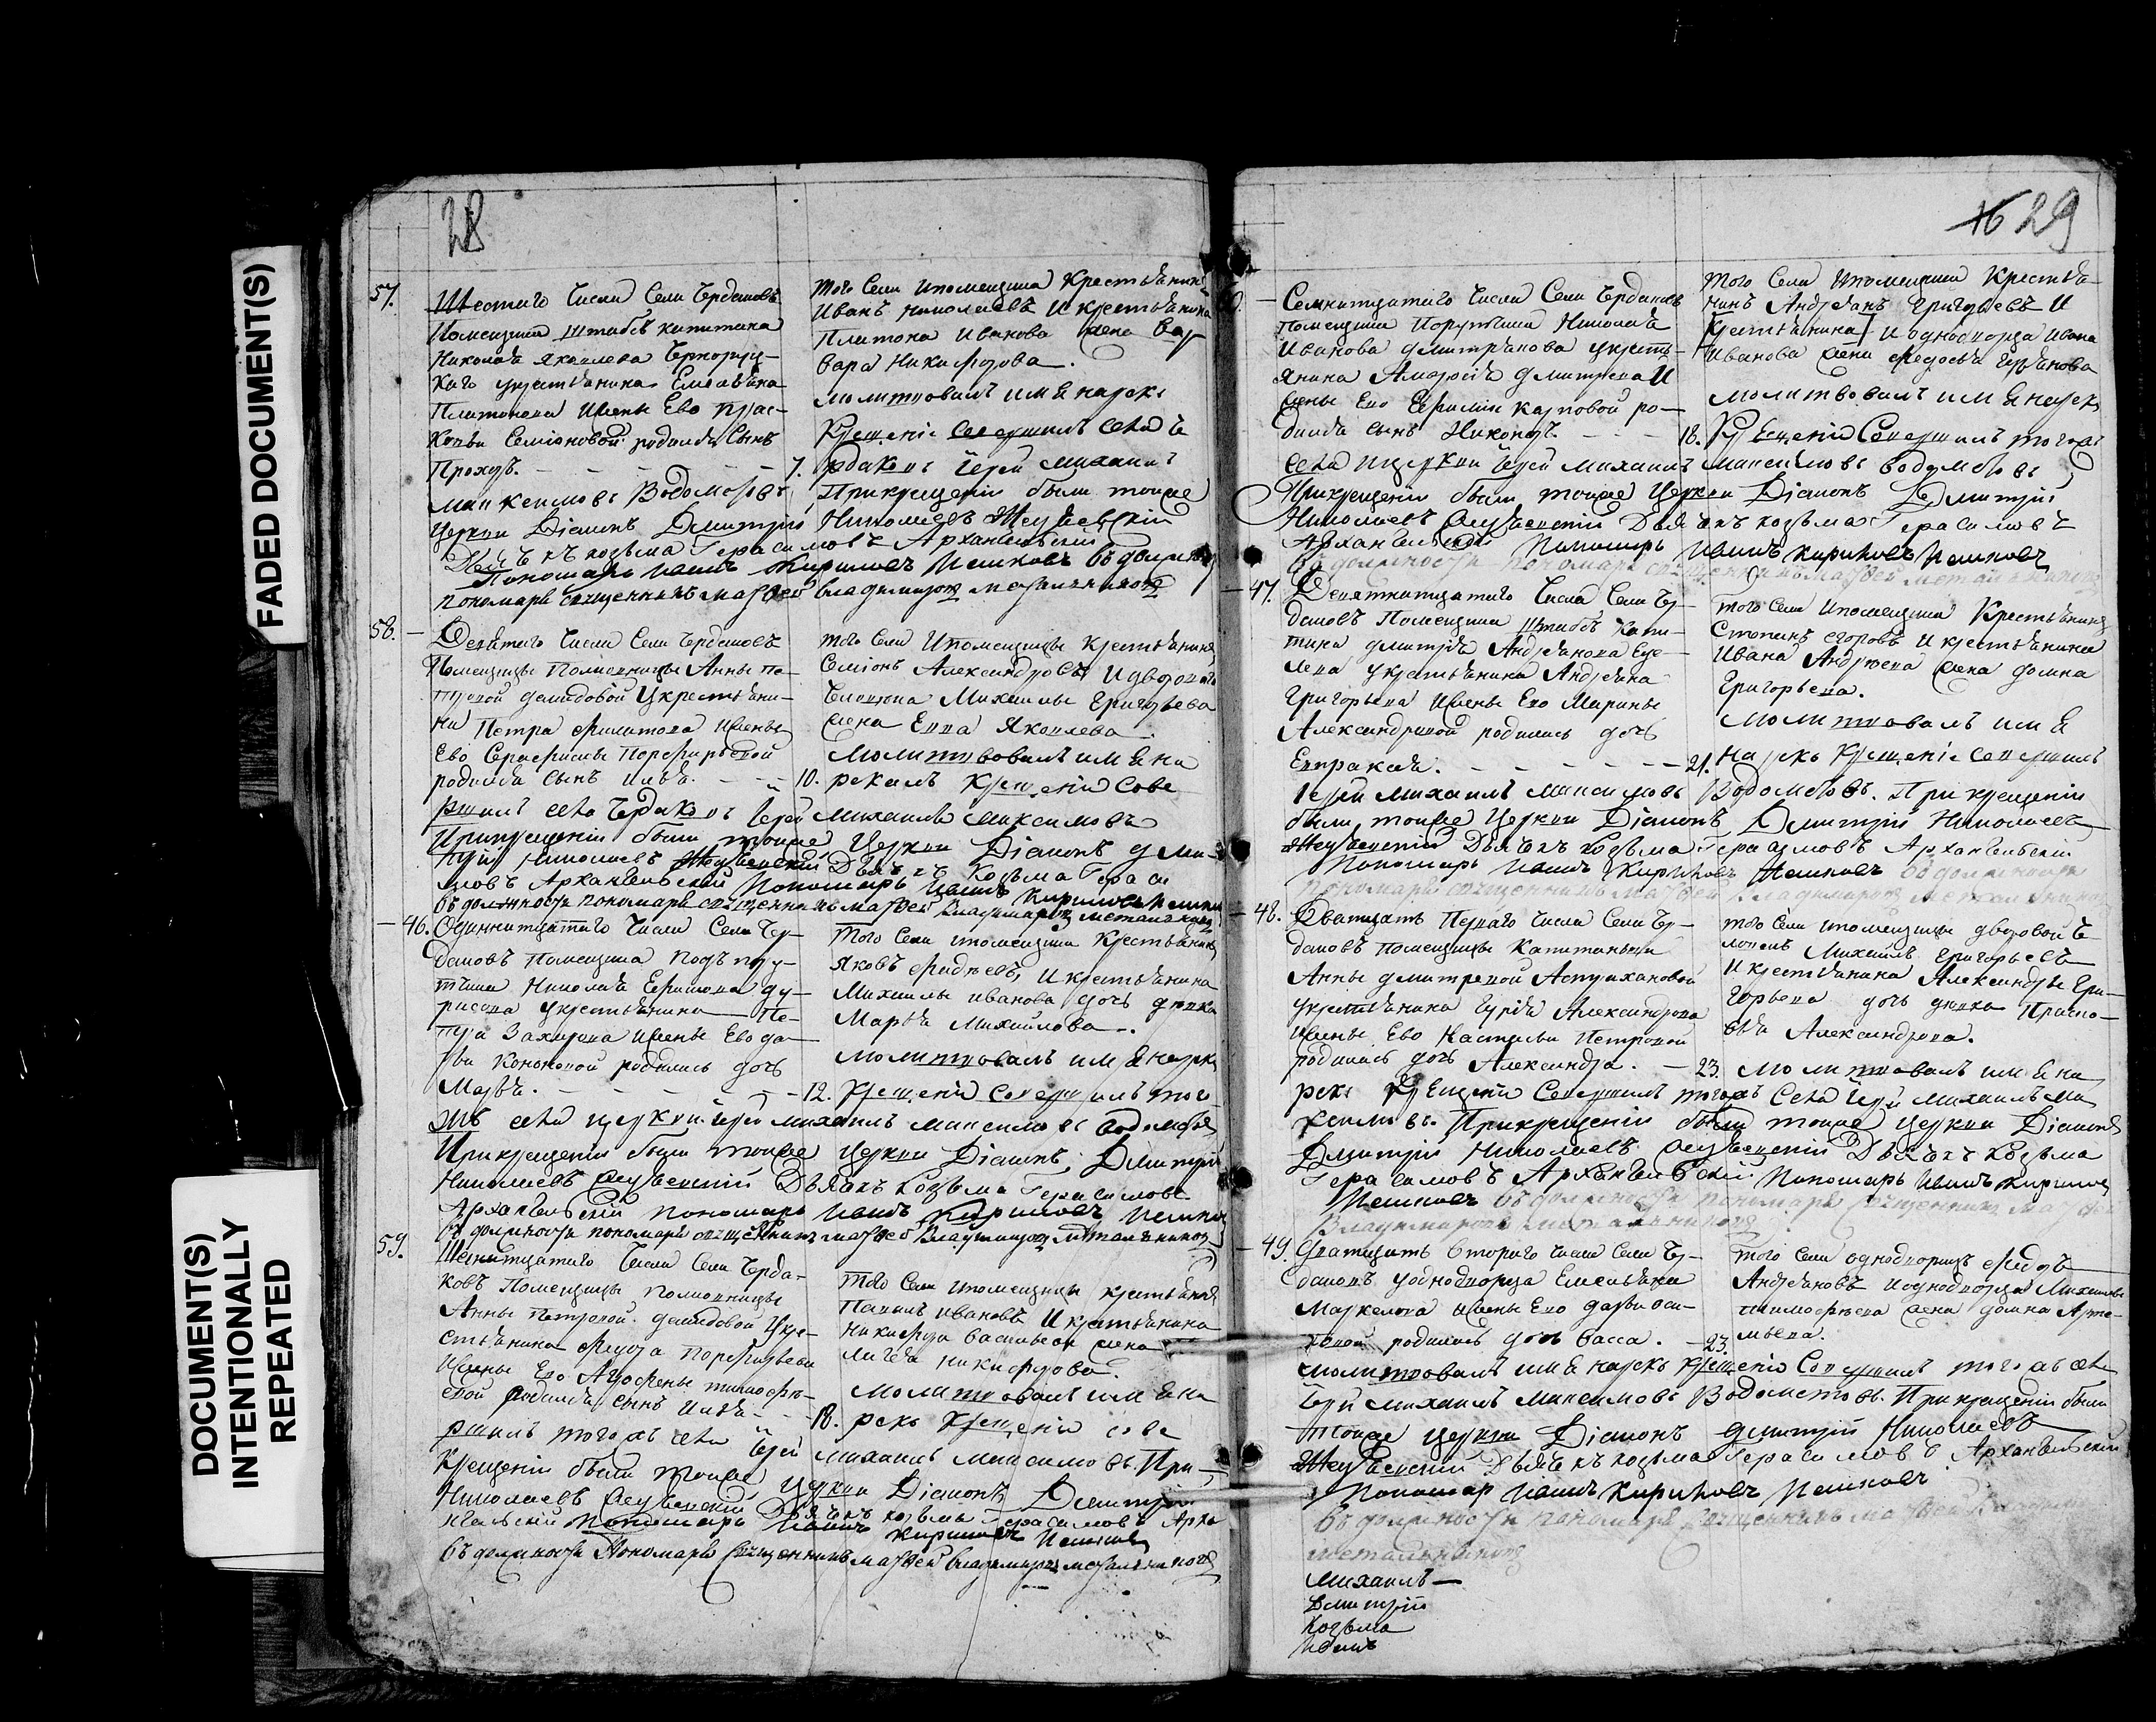 FADED DOCUMENT(S)
DOCUMENT(S)
INTENTIONALLY
REPEATED
28
57. Шестаго Числа Села Чердаковъ
Помещика штабсъ капитана
Николая Яковлева
каго укрестьянина Емельяна
Платонова ижены Ево Прас-
ковьи Семіоновой родился Сынъ
Прохоръ. 7.
того Села ипомещика Крестьянинъ
Иванъ Николаевъ икрестьянина
Платона Иванова жена Вар
вара Никифорова.
молитвовалъ имя нарекъ
Крещеніе Совершилъ села Че
рдаковъ Іерей Михаилъ
Максимовъ Водометовъ, Прикрещеніи были тоиже
Церкви Діаконъ Дмитрій Николаевъ
Дьячекъ козьма Герасимовъ Архангельскій
Пономарь Иванъ Кириловъ въ должности
пономаря священникъ матвей владимировъ
58. Девятаго Числа Села Чердаковъ
Помещицы Полковницы Анны Пе-
тровой демидовой Украстьяни-
на Петра Филипова ижены
Ево Серафимы Перфирьевой
родился Сынъ Илья. 10.
того Села Ипомещицы Крестьянинъ
Семіонъ Александровъ Идвороваго
Человека Михаилы Григорьева
жена Евва Яковлева.
Молитвовалъ имя на
рекалъ Крещеніе Сове
ршилъ села Чердаковъ Іерей Михаилъ Максимовъ
Прикрещеніи были тоиже Церкви Діаконъ дми-
трій Николаевъ Дьячекъ Козьма Гераси
мовъ Архангельскій Пономарь Иванъ Кириловъ
въ должности пономаря священникъ матвей Владимировъ
46. Одиннатцатаго Числа Села Чер-
даковъ Помещика Подъ пору-
тчика Николая Ефимова ду-
расова укрестьянина Пе-
тра Захарова ижены Ево да-
рьи Кононовой родилась дочь
Марья. 12.
того Села ипомещика Крестьянинъ
Яковъ Фадѣевъ, икрестьянина
Михаилы иванова дочь девка
Марья Михайлова.
молитвовалъ имя нарекъ
Крещеніе Совершилъ того
жъ села церкви Іерей михаилъ максимовъ водометовъ
Прикрещеніи были тоиже Церкви Діаконъ Дмитрій
Николаевъ Дьячекъ Козьма Герасимовъ
Архангельскій пономарь иванъ Кириловъ
въ должности пономаря священникъ матвей Владимировъ
59. Числа Села Черда-
ковъ Помещицы полковницы
Анны Петровой демидовой Укре-
стьянина Федора Перфирьева
ижены Ево Агрофены тимофѣ-
евой родился сынъ Илья 18.
того Села ипомещицы крестьянинъ
Павелъ ивановъ Икрестьянина
Никифора Васильева жена
никифорова.
молитвовалъ имя на
рекъ Крещеніе сове
ршилъ тогожъ села Іерей михаилъ максимовъ При
крещеніи были тоиже Церкви Діаконъ Дмитрій
Николаевъ Дьячекъ козьма Герасимовъ Арха
нгельскій пономарь Иванъ Кириловъ
въ должности пономаря священникъ матвей владимировъ
29
60. Семнатцатаго Числа Села Чердаковъ
помещика Порутчика Николая
Иванова дмитріянова укресть-
янина Амвросія дмитрева И
жены Ево Ефиміи карповой ро-
дился сынъ Никоноръ. 18.
того Села ипомещика Крестья-
нинъ Андреянъ Григорьевъ И
Крестьянина иоднодворца Ивана
Иванова жена Федосья
молитвовалъ имя нарекъ
Крещеніе Совершилъ тогожъ
села церкви Іерей михаилъ максимовъ водометовъ
Прикрещеніи были тоиже Церкви Діаконъ Дмитрій
Николаевъ Дьячекъ козьма Герасимовъ
Архангельскій Пономарь Иванъ кириловъ
въ должности пономаря
47. Девятнатцатаго Числа Села Чер-
даковъ Помещика Штабсъ Капи-
тана дмитрія Андреянова
укрестьянина Андреяна
Григорьева ижены Ево Марины
Александровой родилась дочь
Евпраксия. 21.
того Села ипомещика Крестьянинъ
Степанъ егоровъ Икрестьянина
Ивана Андреева жена домна
Григорьева.
молитвовалъ имя
нарекъ Крещеніе совершилъ
Іерей михаилъ максимовъ Водометовъ. Прикрещеніи
были тоиже Церкви Діаконъ Дмитрій Николаевъ
Дьячекъ козьма Герасимовъ Архангельскій
Пономарь Иванъ Кириловъ въ должности
пономаря священникъ матвей владимировъ
48. Дватцать Перваго Числа Села Чер-
даковъ Помещицы Капитанши
Анны дмитревой
укрестьянина Гурія Александрова
ижены Ево Настасьи Петровой
родилась дочь Александра. 23.
того Села ипомещицы дворовой Че
ловекъ Михайлъ Григорьевъ
Икрестьянина Александры Гри-
горьева дочь девка Праско-
вья Александрова.
молитвовалъ имя на
рекъ Крещеніе Совершилъ тогожъ Села Іерей михаилъ ма
ксимовъ. Прикрещеніи были тоиже Церкви Діаконъ
Дмитрій Николаевъ Дьячекъ Козьма
Герасимовъ Архангельскій Пономарь Иванъ Кириловъ
въ должности пономаря священникъ матвей
Владимировъ
49. Дватцать Втораго Числа Села Чер-
даковъ уоднодворца Емельяна
Маркелова ижены Ево дарьи
родилась дочь Васса. 23.
того Села однодворецъ Федоръ
Андреяновъ иоднодворца Михаилы
тимофѣева жена домна Арте-
мьева.
молитвовалъ имя нарекъ Крещеніе Совершилъ тогожъ села
Іерей михаилъ максимовъ Водометовъ. Прикрещеніи были
тоиже церкви Діаконъ дмитрій Николаевъ
Дьячекъ козьма Герасимовъ Архангельскій
Пономар Иванъ Кириловъ
въ должности пономаря священникъ матвей
Михаилъ
Дмитрій
Козьма
Иванъ